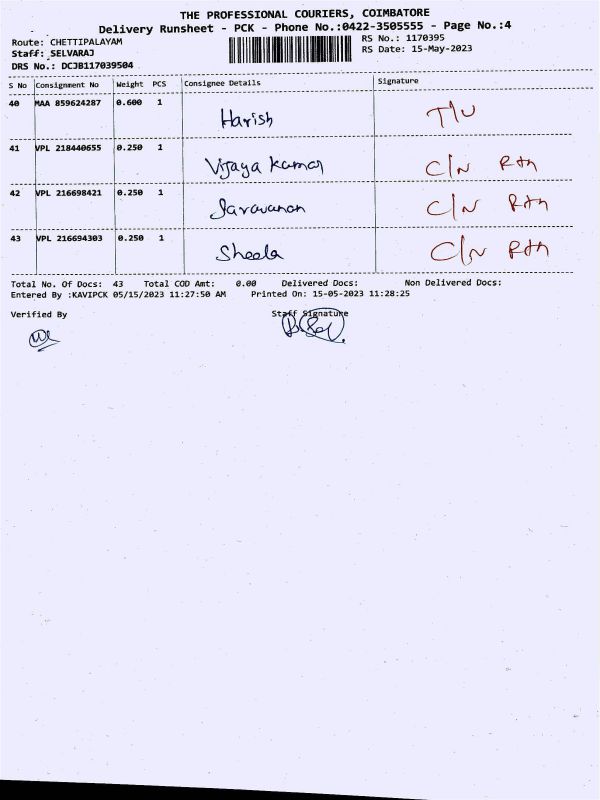 THE PROFESSIONAL COURIERS, COIMBATORE
Delivery Runsheet - PCK - Phone No.:0422-3505555 - Page No.:4
Route: CHETTIPALAYAM RS No.: 1170395
Staff: SELVARAJ RS Date: 15-May-2023
DRS No.: DCJB117039504
S No Consignment No Weight PCS Consignee Details Signature
40 MAA 859624287 0.600 1 Harish T/U
41 VPL 218440655 0.250 1 Vijaya Kumar C/N Rtn
42 VPL 216698421 0.250 1 Saravanan C/N Rtn
43 VPL 216694303 0.250 1 Sheela C/N Rtn
Total No. Of Docs: 43 Total COD Amt: 0.00 Delivered Docs: Non Delivered Docs:
Entered By :KAVIPCK 05/15/2023 11:27:50 AM Printed On: 15-05-2023 11:28:25
Verified By Staff Signature